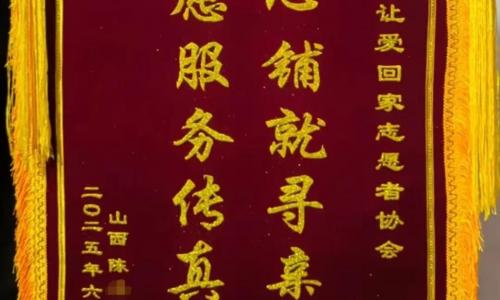 让爱回家志愿者协会
心铺就寻亲
服务传真
山西陈
二〇二五年六